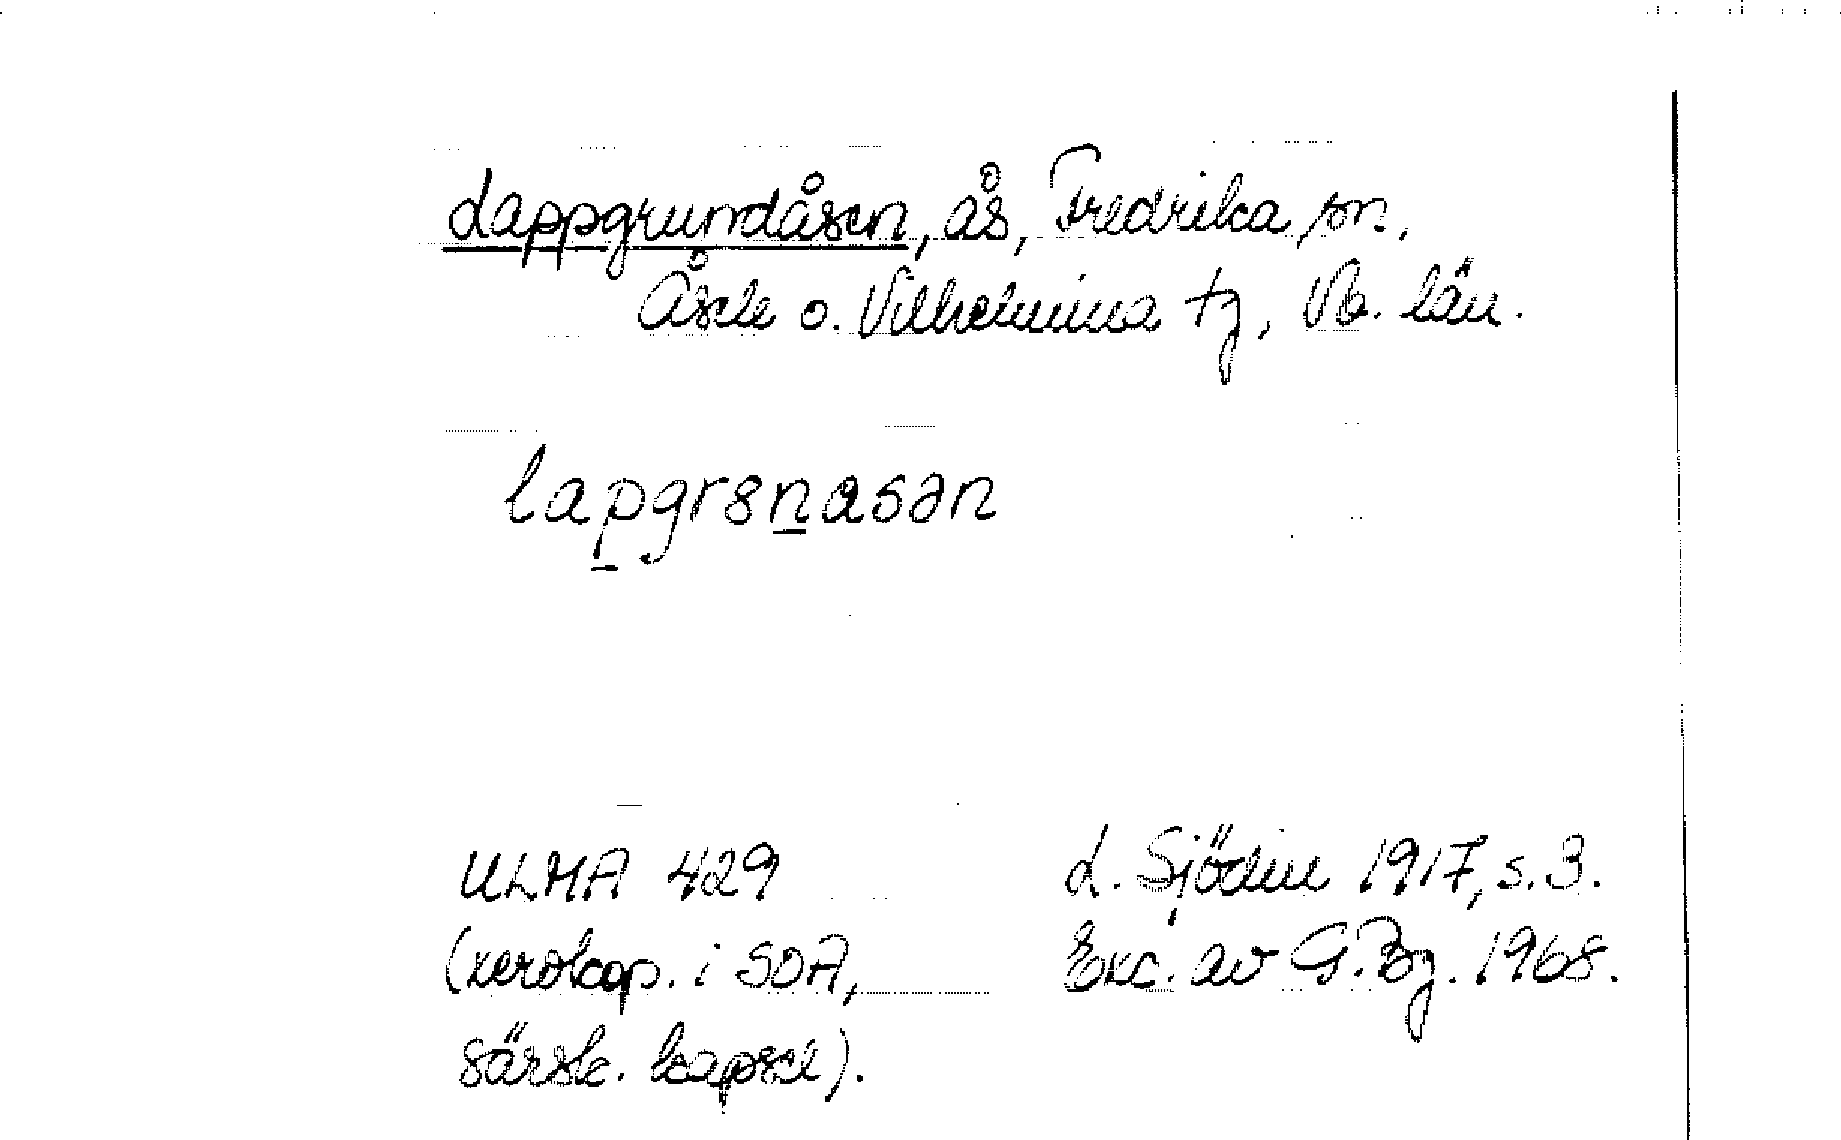 Lappgrundåsen, ås, Fredrika sn,
Åsele o. Vilhelmina tg, Vb. län.
lapgr8nasən
ULMA 429
(xerokop. i SOA,
särsk. kapsel).
L. Sjödin 1917, s. 3.
Exc. av G. Bg. 1968.